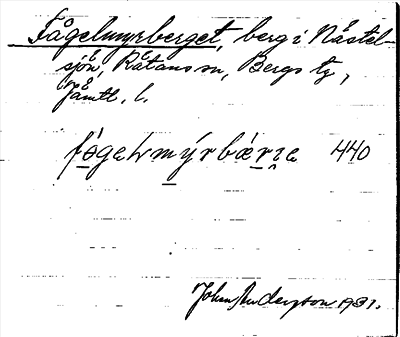 Fågelmyrberget, berg i Nåstel-
sjön, Rätans sn, Bergs tg,
Jämtl. l.
440
John Anderzson 1931.